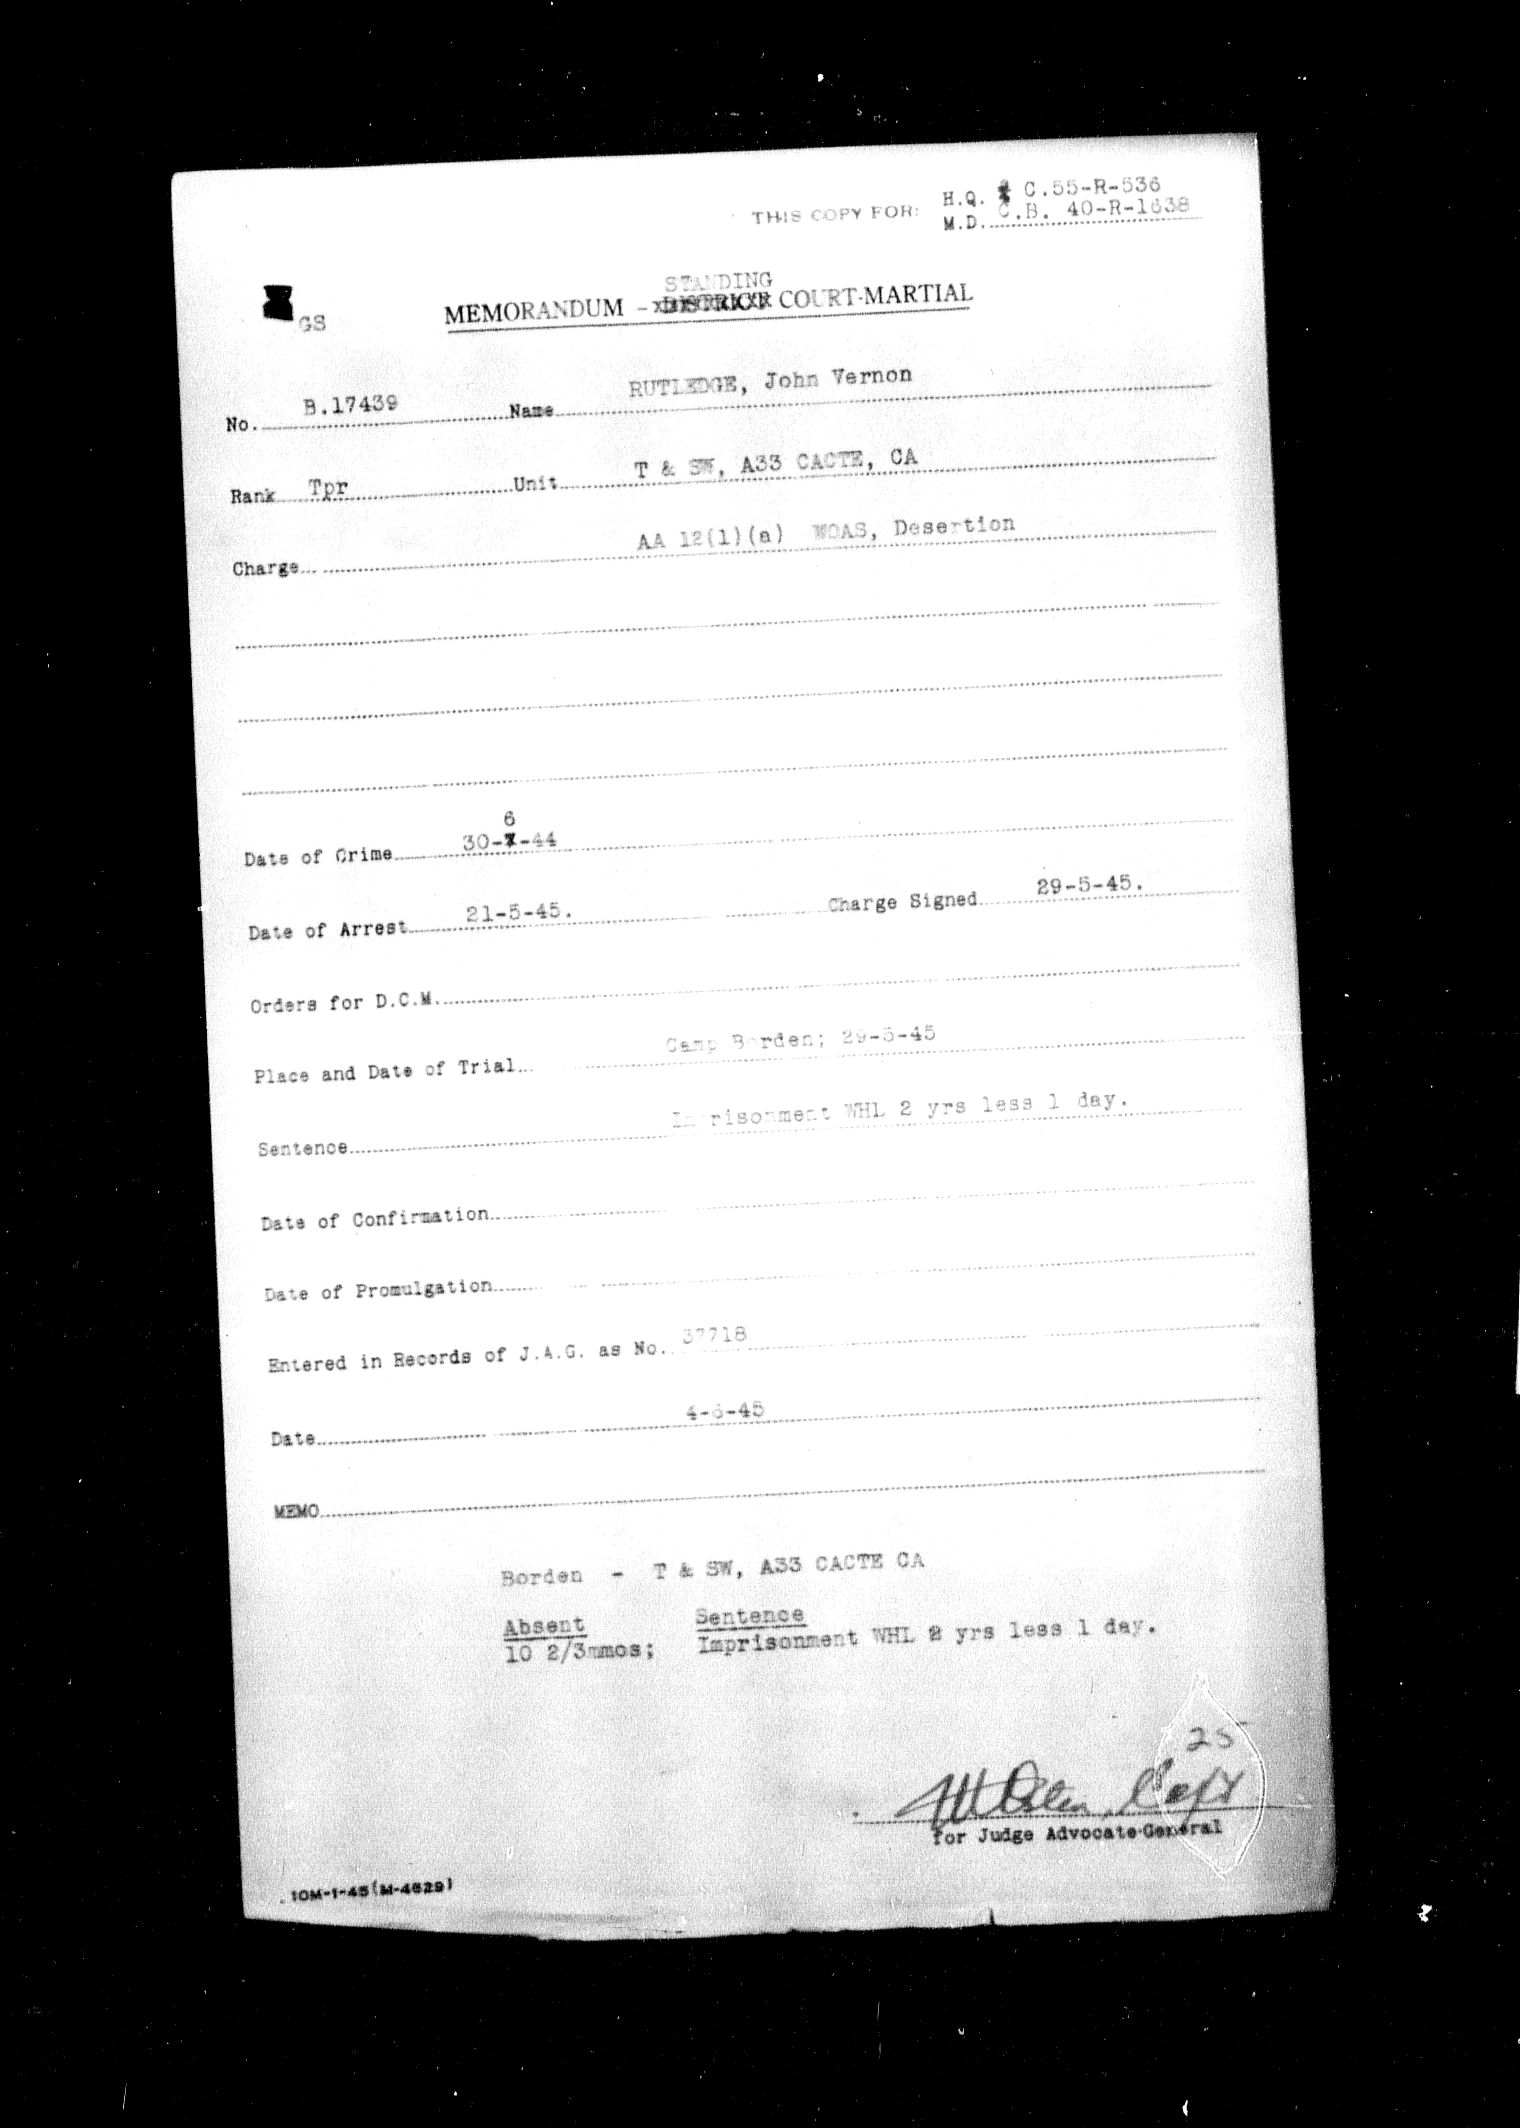 THIS COPY FOR: H.Q. C.55-R-536
M.D. C.B. 40-R-1638
GS
STANDING
MEMORANDUM - DISTRICT COURT-MARTIAL
No. B.17439 Name RUTLEDGE, John Vernon
Rank Tpr Unit T & SW, A33 CACTE, CA
Charge AA 12(1)(a) WOAS, Desertion
6
Date of Crime 30-7-44
Date of Arrest 21-5-45. Charge Signed 29-5-45.
Orders for D.C.M.
Place and Date of Trial Camp Borden; 29-5-45
Sentence Imprisonment WHL 2 yrs less 1 day.
Date of Confirmation
Date of Promulgation
Entered in Records of J.A.G. as No. 37718
Date 4-6-45
MEMO
Borden - T & SW, A33 CACTE CA
Absent Sentence
10 2/3mmos; Imprisonment WHL 2 yrs less 1 day.
25
Capt
for Judge Advocate-General
10M-1-45(M-4629)